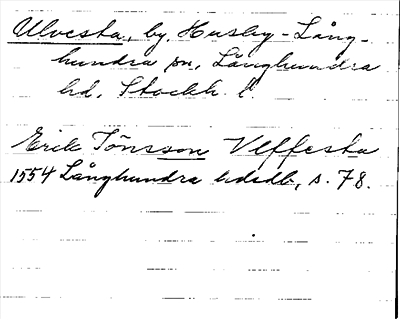 Ulvesta, by, Husby-Lång-
hundra sn, Långhundra
hd. Stockh. l
Erik Jönsson Vlffesta
1554 Långhundra hdsdb, s. 78.